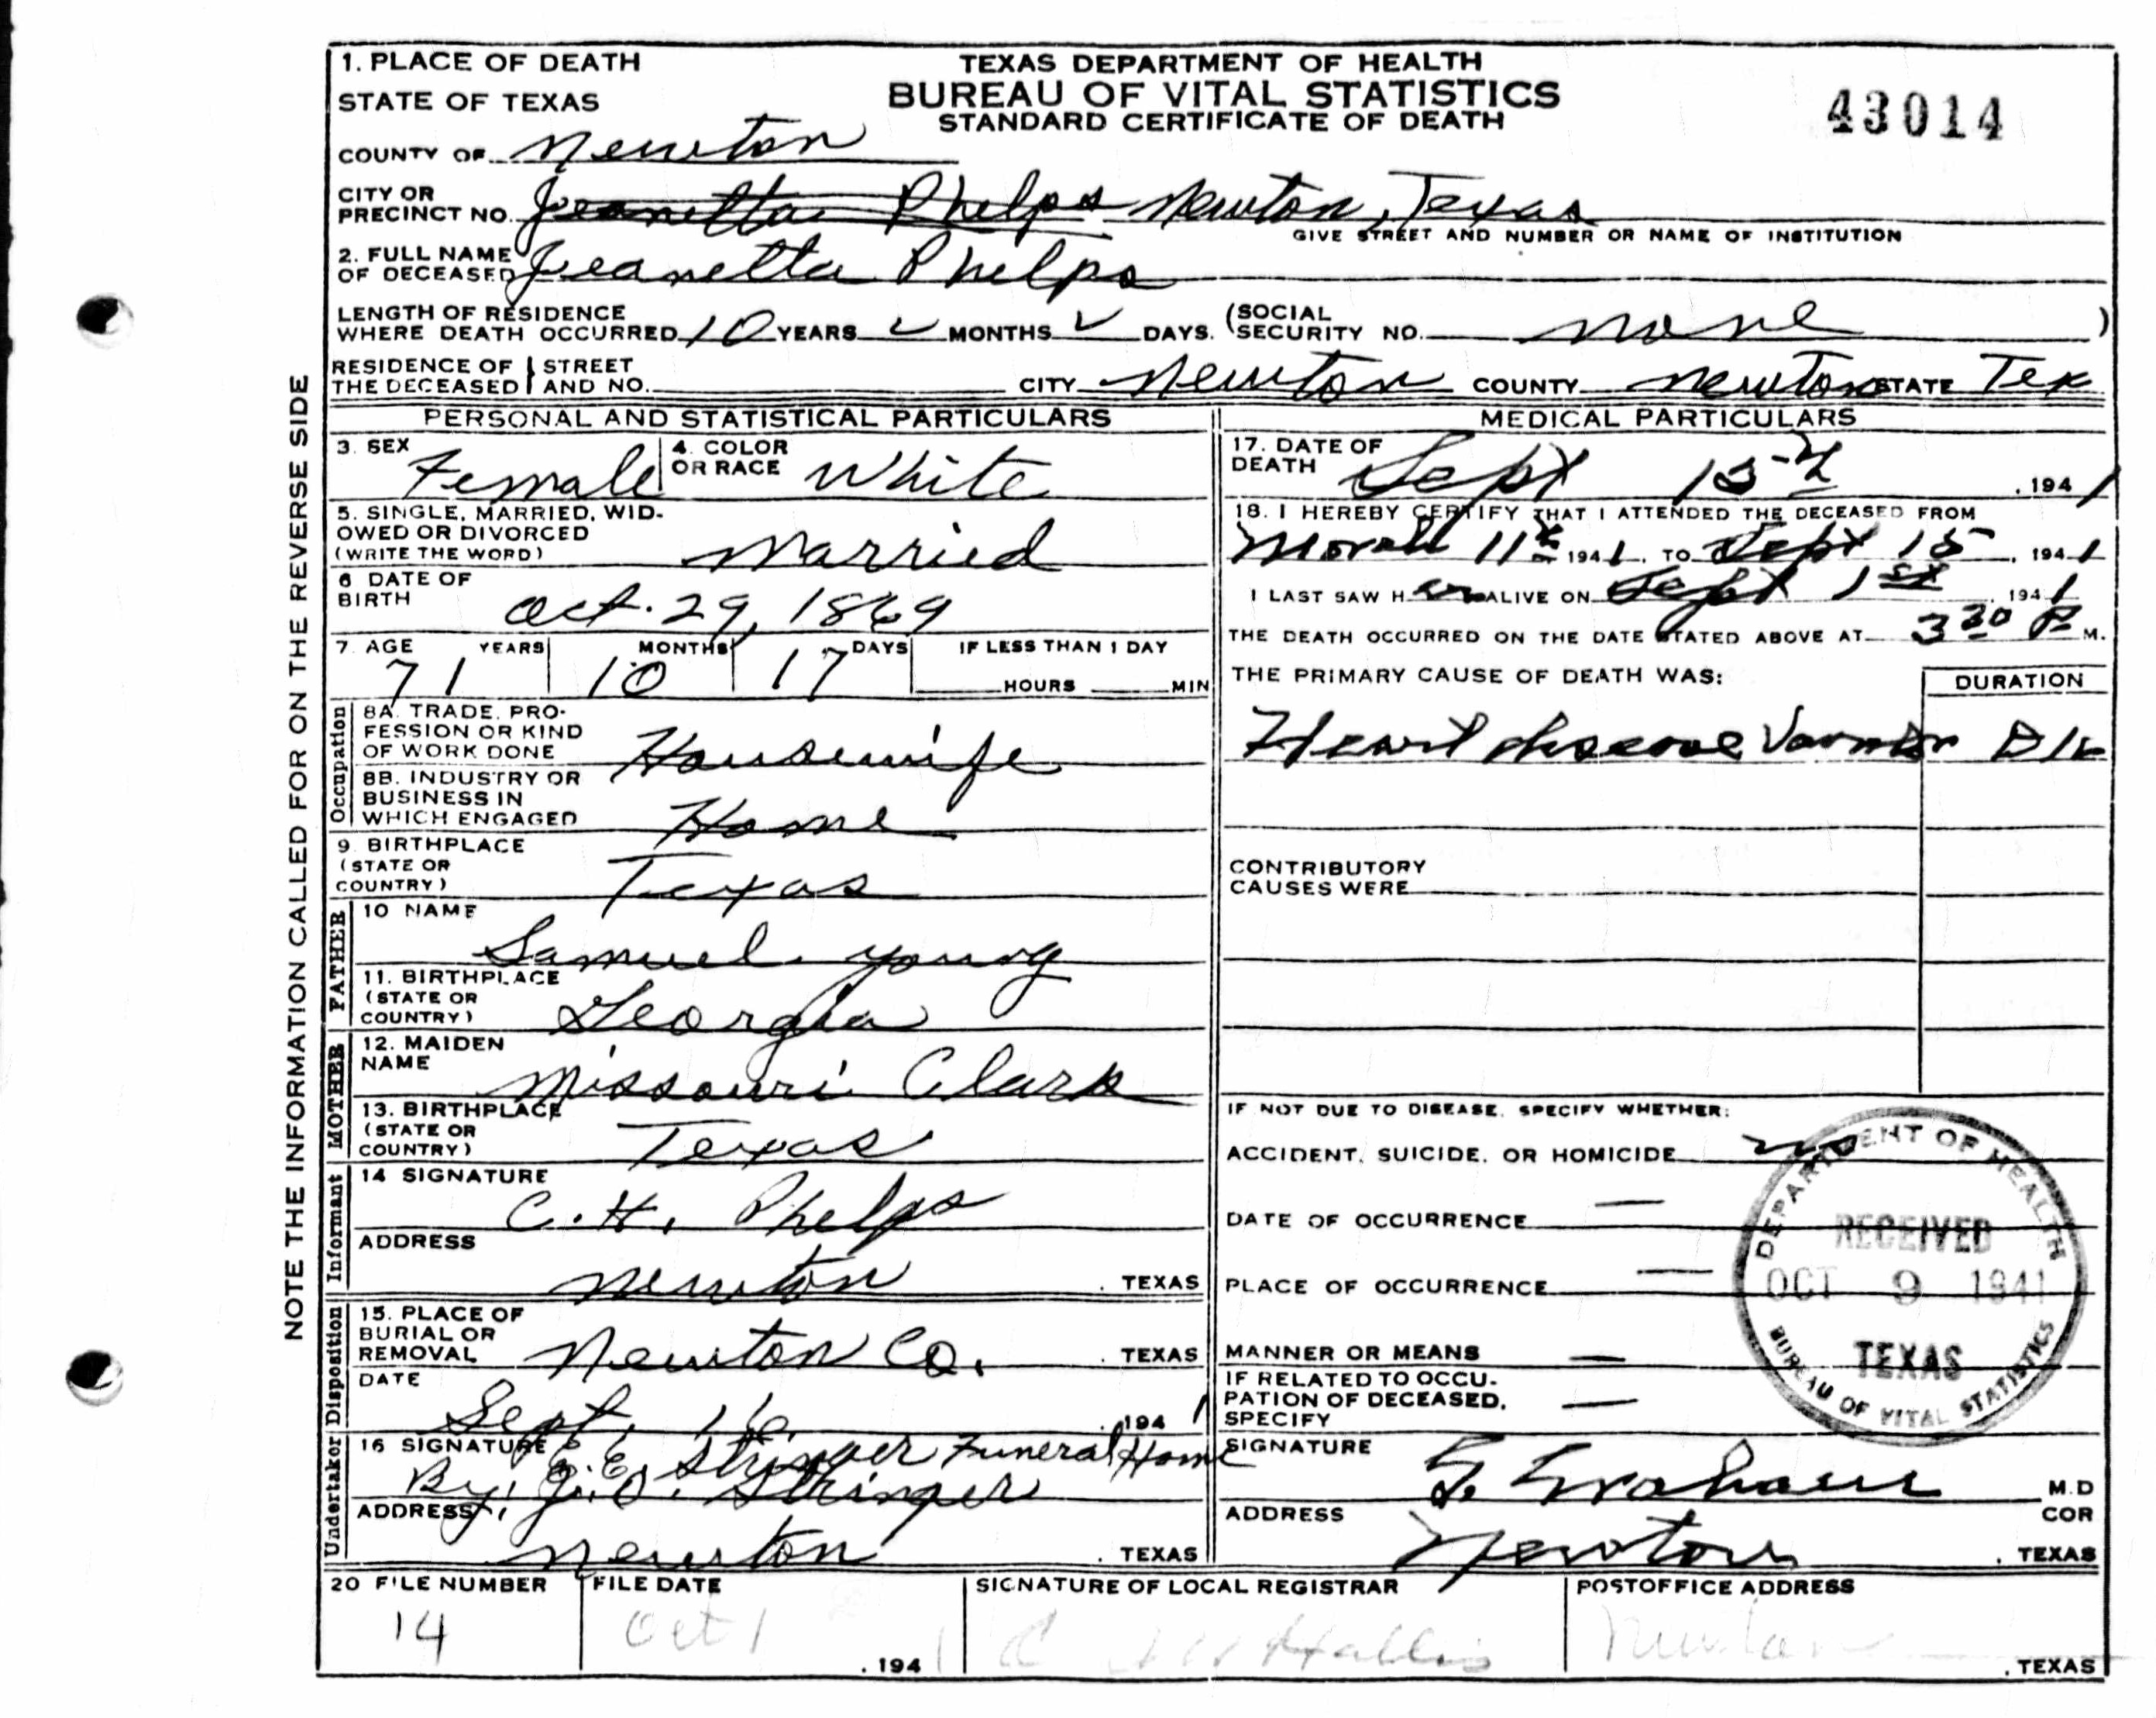 1. PLACE OF DEATH
STATE OF TEXAS
TEXAS DEPARTMENT OF HEALTH
BUREAU OF VITAL STATISTICS
STANDARD CERTIFICATE OF DEATH
43014
COUNTY OF Newton
CITY OR PRECINCT NO. Jeanetta Phelps Newton, Texas
GIVE STREET AND NUMBER OR NAME OF INSTITUTION
2. FULL NAME OF DECEASED Jeanetta Phelps
LENGTH OF RESIDENCE WHERE DEATH OCCURRED 10 YEARS MONTHS DAYS. (SOCIAL SECURITY NO. none )
RESIDENCE OF THE DECEASED STREET AND NO. CITY Newton COUNTY Newton STATE Tex
NOTE THE INFORMATION CALLED FOR ON THE REVERSE SIDE
PERSONAL AND STATISTICAL PARTICULARS
3. SEX Female 4. COLOR OR RACE White
5. SINGLE, MARRIED, WIDOWED OR DIVORCED (WRITE THE WORD) Married
6 DATE OF BIRTH Oct. 29, 1869
7 AGE YEARS MONTHS DAYS IF LESS THAN 1 DAY
71 10 17 HOURS MIN
Occupation
8A. TRADE, PROFESSION OR KIND OF WORK DONE Housewife
8B. INDUSTRY OR BUSINESS IN WHICH ENGAGED Home
9. BIRTHPLACE (STATE OR COUNTRY) Texas
FATHER
10 NAME Samuel Young
11. BIRTHPLACE (STATE OR COUNTRY) Georgia
MOTHER
12. MAIDEN NAME Missouri Clark
13. BIRTHPLACE (STATE OR COUNTRY) Texas
Informant
14 SIGNATURE C. H. Phelps
ADDRESS Newton, TEXAS
Disposition
15. PLACE OF BURIAL OR REMOVAL Newton Co., TEXAS
DATE Sept. 16, 1941
Undertaker
16 SIGNATURE E. E. Stringer Funeral Home
By: J. O. Stringer
ADDRESS Newton, TEXAS
MEDICAL PARTICULARS
17. DATE OF DEATH Sept 15th, 1941
18. I HEREBY CERTIFY THAT I ATTENDED THE DECEASED FROM
March 11th 1941, TO Sept 15, 1941
I LAST SAW H er ALIVE ON Sept 1st, 1941
THE DEATH OCCURRED ON THE DATE STATED ABOVE AT 3 30 P M.
THE PRIMARY CAUSE OF DEATH WAS: DURATION
Heart disease
CONTRIBUTORY CAUSES WERE
IF NOT DUE TO DISEASE, SPECIFY WHETHER:
ACCIDENT, SUICIDE, OR HOMICIDE no
DATE OF OCCURRENCE —
PLACE OF OCCURRENCE —
MANNER OR MEANS —
IF RELATED TO OCCUPATION OF DECEASED, SPECIFY —
DEPARTMENT OF HEALTH
RECEIVED
OCT 9 1941
TEXAS
BUREAU OF VITAL STATISTICS
SIGNATURE G. Graham M.D
COR
ADDRESS Newton, TEXAS
20 FILE NUMBER FILE DATE SIGNATURE OF LOCAL REGISTRAR POSTOFFICE ADDRESS
14 Oct 1, 1941 Hallis Newton, TEXAS